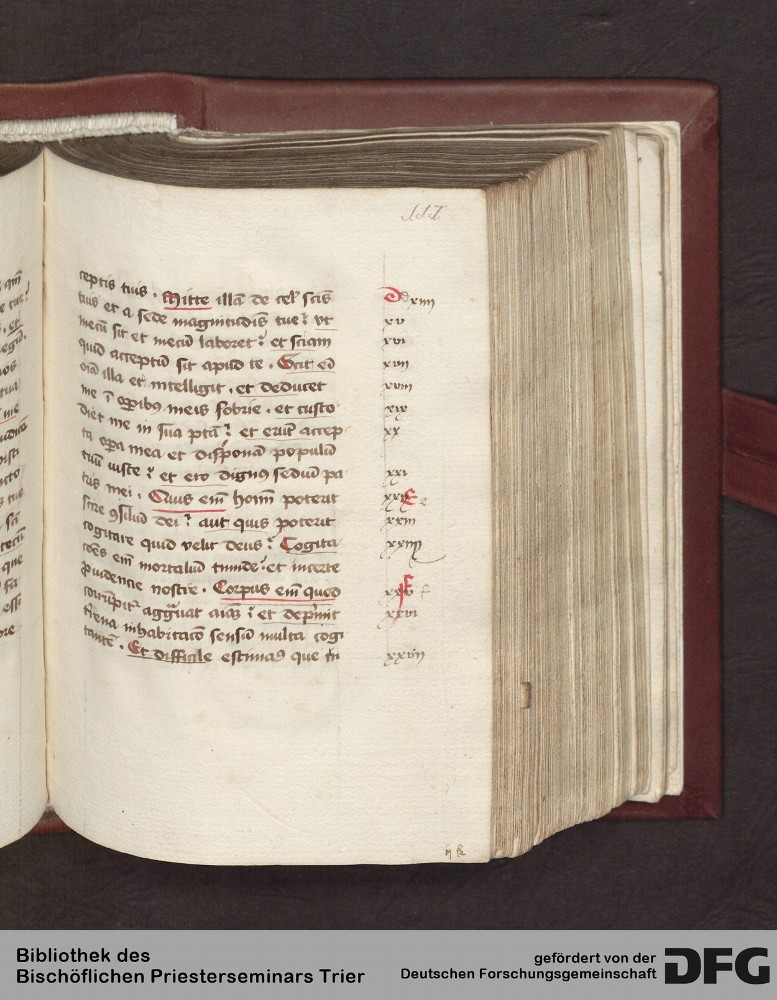 ceptis tuis . Mitte illā de cel' scīs
tuis et a sede magnitudīs tue : ut
mecū sit et mecū laboret : et sciam
quid acceptū sit apud te . Scit eī
oīa illa et intelligit . et deducet
me ī op̄ibꝰ meis sobrie . et custo
diet me in sua ptā : et erūt accep
ta opa mea et disponā populū
tuū iuste : et ero dignꝰ sediū pa
tris mei . Quis em̄ hoīm poterit
scire ꝯsiliū dei : aut quis poterit
cogitare quid velit deus : Cogita
cōes em̄ mortaliū timide : et incerte
ꝓuidencie nostre . Corpus em̄ quod
corrūpit aggrauat aīaꝫ : et dep̄mit
t̄rena inhabitacō sensū multa cogi
tantē . Et difficile estimaꝰ que in
D d xiiii
xv
xvi
xvii
xviii
xix
xx
xxi
xxii E e
xxiii
xxiiii
xxv F f
xxvi
xxvii
Bibliothek des
Bischöflichen Priesterseminars Trier
gefördert von der
Deutschen Forschungsgemeinschaft
DFG